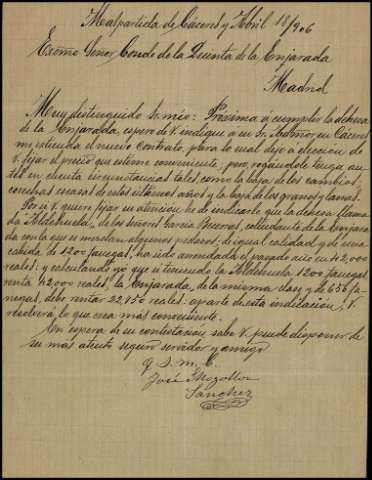 Malpartida de Cáceres y Abril 18/906
Excmo Señor Conde de la Quinta de la Enjarada
Madrid
Muy distinguido Sr. mio: Próxima á cumplir la dehesa
de la Enjarada, espero de V. indique a su Sr. en Cáceres
me estienda el nuevo Contrato, para lo cual dejo á eleccion de
V. fijar el precio que estime conveniente, pero, rogándole tenga an-
tes en cuenta circunstancias tales como la baja de los cambios,
cosechas escasas de estos últimos años y la baja de los granos y lanas.
Por si V. quiere fijar su atención he de indicarle que la dehesa llama-
da "Aldehuela", de los señores Garcia Becerra, colindante de la Enjara-
da con la que se mezclan algunos pedazos; de igual calidad y de una
cabida de 1200 fanegas, ha sido arrendada el pasado año en 42,000
reales: y calculando yó que si teniendo la Aldehuela 1200 fanegas,
renta 42000 reales, la Enjarada, de la misma clase y de 656 fa-
negas, debe rentar 22,950 reales: aparte de esta indicación, V.
resolverá lo que crea más conveniente.
En espera de su contestación sabe V. puede disponer de
su más atento seguro servidor y amigo
q. s. m. b.
José Mogollon
Sanchez